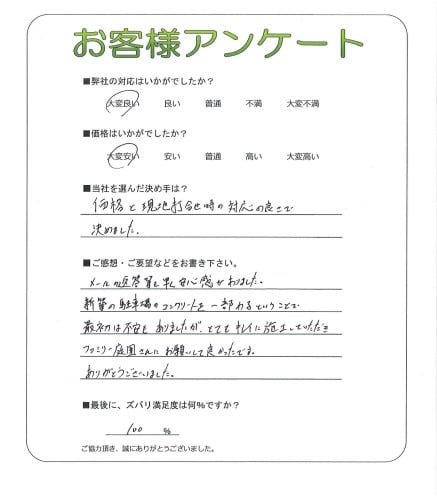 お客様アンケート
■弊社の対応はいかがでしたか？
大変良い 良い 普通 不満 大変不満
■価格はいかがでしたか？
大変安い 安い 普通 高い 大変高い
■当社を選んだ決め手は？
価格と現地打合せ時の対応の良さで
決めました。
■ご感想・ご要望などをお書き下さい。
メールの返答等も早く安心感がありました。
新築の駐車場のコンクリートを一部わるということで
最初は不安もありましたが、とてもキレイに施工していただき
ファミリー庭園さんにお願いして良かったです。
ありがとうございました。
■最後に、ズバリ満足度は何%ですか？
100 %
ご協力頂き、誠にありがとうございました。